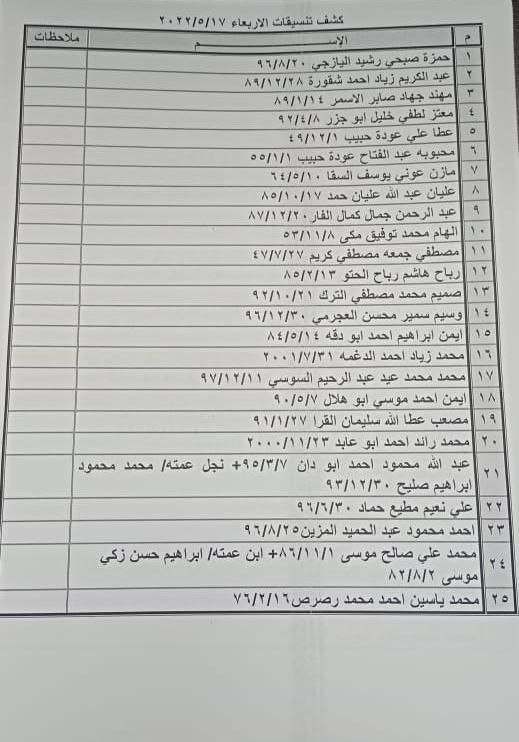 كشف تنسيقات الاربعاء ٢٠٢٢/٥/١٧
م الإســـــم ملاحظات
١ حمزة صبحي رشيد اليازجي ٩٦/٨/٢٠
٢ عبد الكريم زياد احمد شقورة ٨٩/١٢/٢٨
٣ مهند جهاد صابر الاسمر ٨٩/١/١٤
٤ معتز لطفي خليل ابو جزر ٩٢/٤/٨
٥ عطا علي عودة حبيب ٤٩/١٢/١
٦ محبوبه عبد الفتاح عودة حبيب ٥٥/١/١
٧ مازن عوني يوسف السقا ٦٤/٥/١٠
٨ عليان عبد الله عليان حمد ٨٥/١٠/١٧
٩ عبد الرحمن جمال كمال الفار ٨٧/١٢/٢٠
١٠ الهام محمد توفيق مكي ٥٣/١١/٨
١١ مصطفي جمعه مصطفي كريم ٤٧/٧/٢٧
١٢ رباح هاشم رباح الحتو ٨٥/٢/١٣
١٣ صميم محمد مصطفي الترك ٩٢/١٠/٢١
١٤ وسيم سمير محسن العجرمي ٩٦/١٢/٣٠
١٥ ايمن ابراهيم احمد ابو دقه ٨٤/٥/١٤
١٦ محمد زياد احمد الدغمه ٢٠٠١/٧/٣١
١٧ محمد محمد عيد عبد الرحيم السوسي ٩٧/١٢/١١
١٨ ايمن احمد موسي ابو هلال ٩٠/٥/٧
١٩ مصعب عطا الله سليمان القرا ٩١/١/٢٧
٢٠ محمد رائد احمد ابو عابد ٢٠٠٠/١١/٢٣
٢١ عبد الله محمود احمد ابو دان ٩٥/٣/٧+ نجل عمته/ محمد محمود
ابراهيم صليح ٩٣/١٢/٣٠
٢٢ علي نعيم مطيع حماد ٩٦/٦/٣٠
٢٣ احمد محمود عبد الحميد المزين ٩٦/٨/٢٥
٢٤ محمد علي صالح موسي ٨٦/١١/١+ ابن عمته/ ابراهيم حسن زكي
موسي ٨٢/٨/٢
٢٥ محمد ياسين احمد محمد رصرص ٧٦/٢/١٦